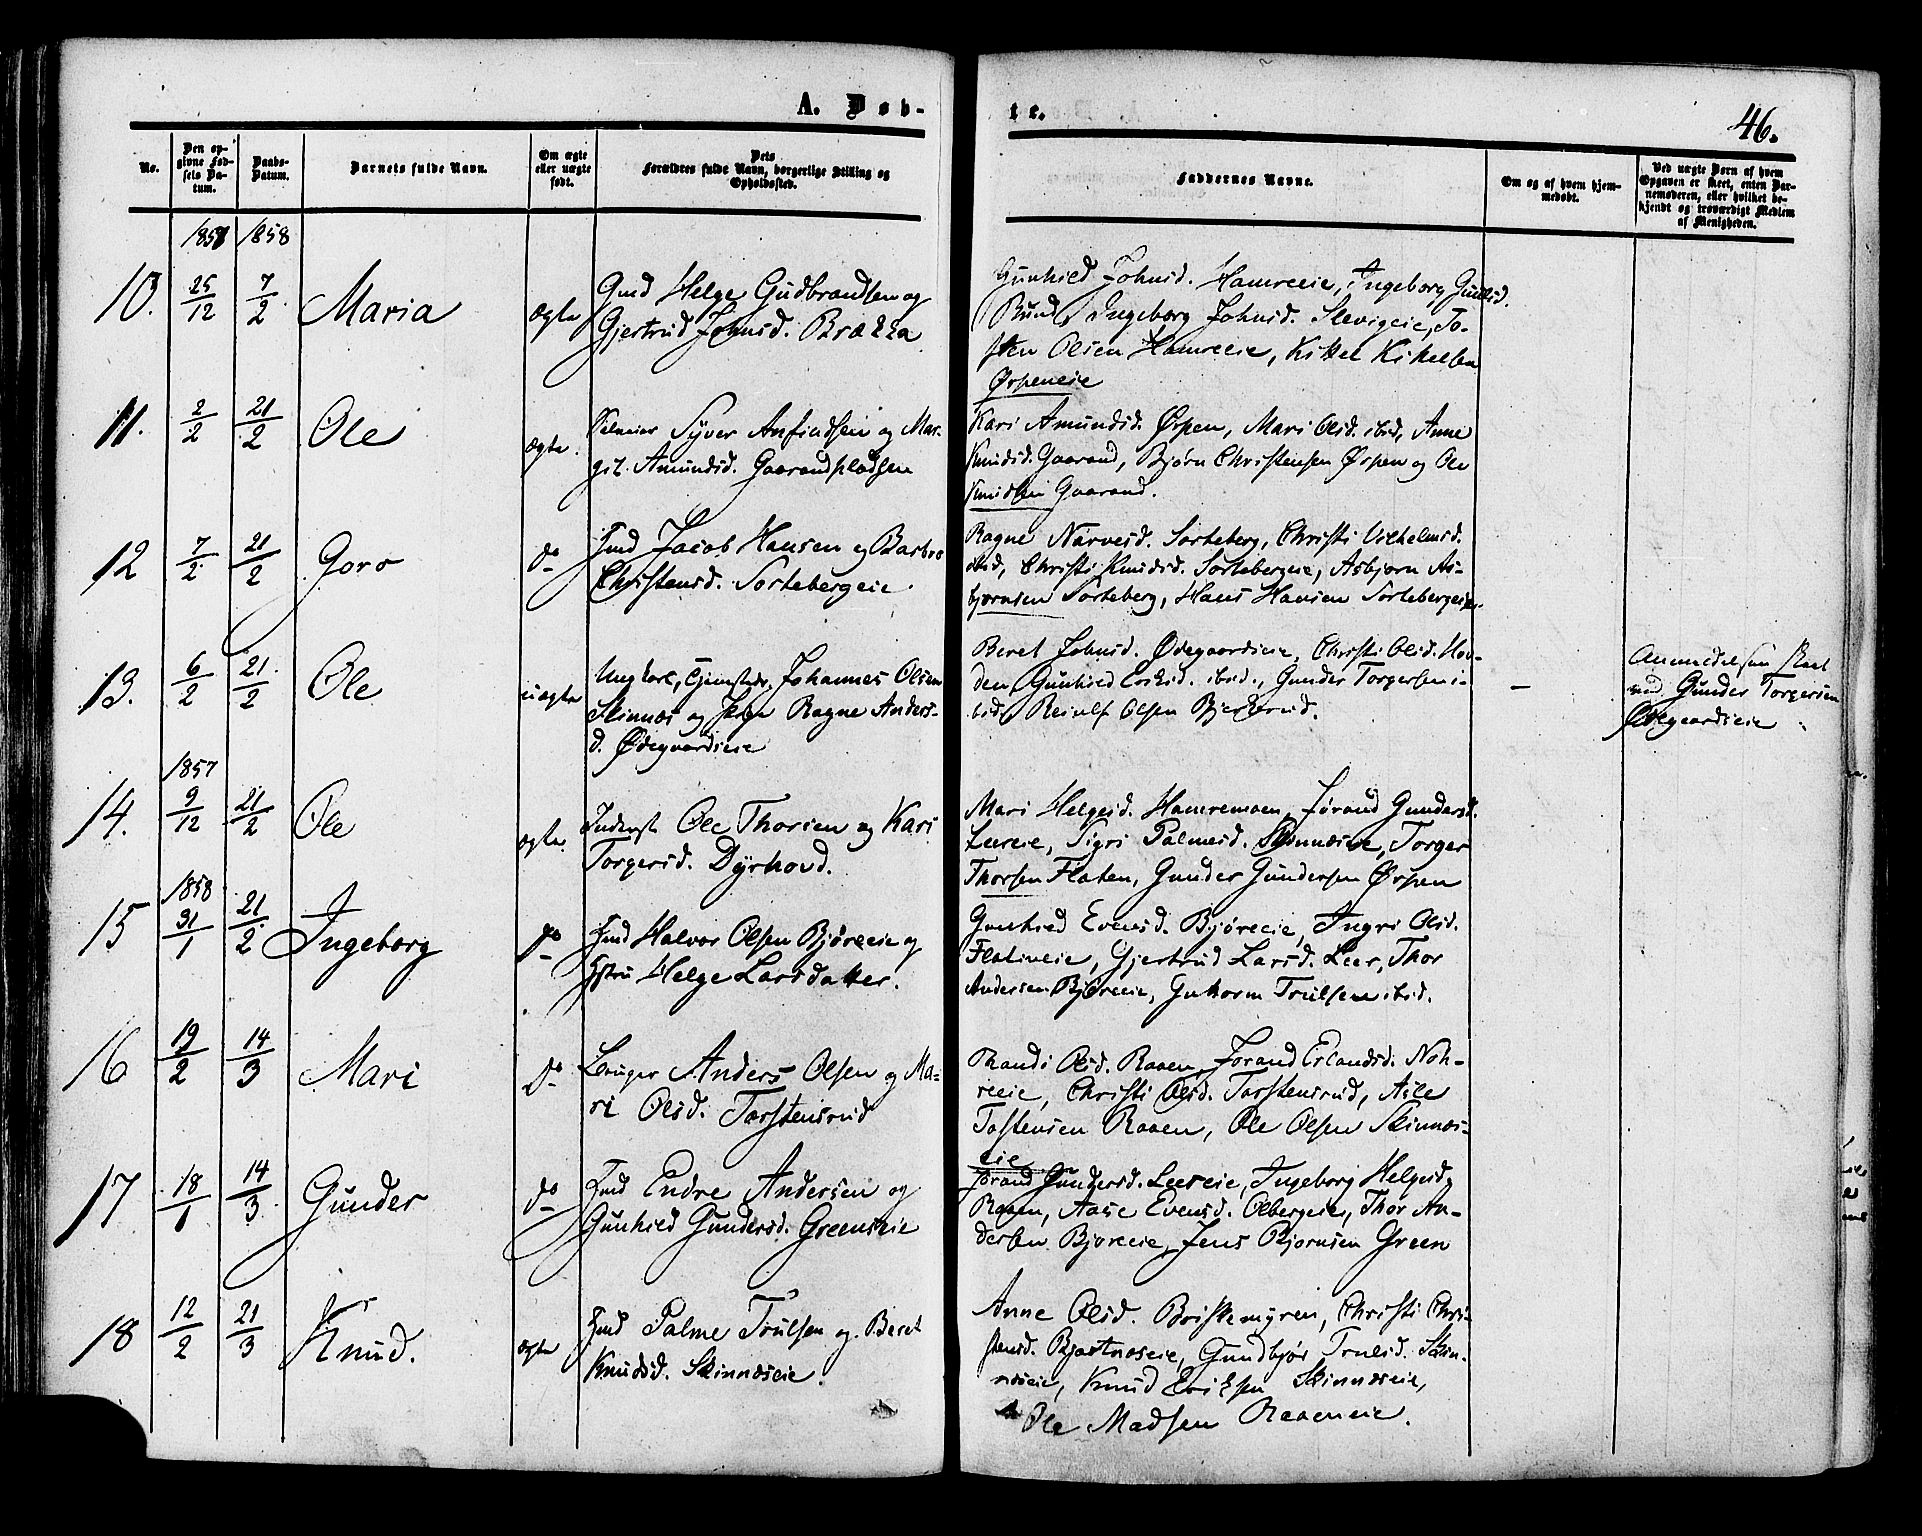 A. Døb-
te.
46.
No.
Den op-
givne Fød-
sels Da-
tum.
Daabs-
Datum.
Barnets fulde Navn.
Om ægte
eller uægte
født.
Dets
Forældres fulde Navn, borgerlige Stilling og
Opholdssted.
Faddernes Navne.
Om og af hvem hjem-
medøbt.
Ved uægte Børn af hvem
Opgaven er skeet, enten Bar-
nemoderen, eller hvilket be-
kjendt og troværdigt Medlem
af Menigheden.
1857 1858
10. 25/12 7/2 Maria ægte
Gmd Helge Gudbrandsen og
Gjertrud Johnsd. Brækka
Gunhild Johnsd. Hamreeie, Ingeborg
Rund, Ingeborg Johnsd. Slevigeie, To-
sten Olsen Hamreeie, Kittel Kittelsen
Ørpeneie
11. 2/2 21/2 Ole ægte.
Syver Anfindsen og Mar-
git Amundsd. Gaarandpladsen
Kari Amundsd. Ørpen, Mari Olsd. ibid, Anne
Knudsd. Gaarand, Bjørn Christensen Ørpen og Ole
Knudsen Gaarand.
12 7/2 21/2 Goro do
Jacob Hansen og Barbro
Christensd. Sortebergeie.
Ragne Narvesd. Sorteberg, Christi Vilhelmsd.
ibid, Christi Knudsd. Sortebergeie, Asbjørn As-
bjørnsen Sorteberg, Hans Hansen Sortebergeie.
13. 6/2 21/2 Ole uægte
Ungkarl, Johannes Olsen
Skinnæs og Pige Ragne Anders-
d. Ødegaardseie
Beret Johnsd. Ødegaardseie, Christi Olsd. Hov-
den, Gunhild ibid., Gunder Torgersen i-
bid, Reiulf Olsen Bjerkerud.
–
Anmeldelsen skeet
ved Gunder Torgersen
Ødegaardseie
1857
14. 9/12 21/2 Ole ægte
Inderst Ole Thorsen og Kari
Torgersd. Dyrhovd.
Mari Helgesd. Hamremoen, Jørand Gundersd.
Leereie, Sigri Palmesd. Skinnæseie, Torger
Thorsen Flaten, Gunder Gundersen Ørpen
1858
15 31/1 21/2 Ingeborg do
Halvor Olsen Bjøreeie og
Hstru Helge Larsdatter.
Gunhild Evensd. Bjøreeie, Ingri Olsd.
Flatineie, Gjertrud Larsd. Leer, Thor
Andersen Bjøreeie, Guttorm Trulsen ibid.
16 19/2 14/3 Mari do
Bruger Anders Olsen og Ma-
ri Olsd. Torstensrud
Olsd. Raaen, Jorand Erlandsd. Noh-
reeie, Christi Olsd. Torstensrud, Asle
Tostensen Raaen, Ole Olsen Skinnæs-
eie
17 18/1 14/3 Gunder do
Endre Andersen og
Gunhild Gundersd. Greenseie
Jorand Gundersd. Leereie, Ingeborg Helgesd.
Raaen, Aase Evensd. Olbergeie, Thor An-
dersen Bjøreeie, Jens Bjørnsen Green
18 12/2 21/3 Knud. ægte
Palme Trulsen og Beret
Knudsd. Skinnæseie.
Anne Olsd. Briskemyren, Christi Chri-
stensd. Bjertnæseie, Gundbjør Trulsd. Skin-
næseie, Knud Eriksen Skinnæseie,
Ole Madsen Raaeneie.